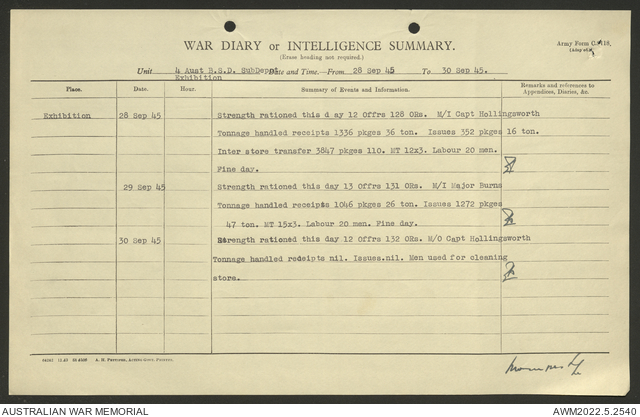 WAR DIARY or INTELLIGENCE SUMMARY.
(Erase heading not required.)
Army Form C.
Unit 4 Aust B.S.D. SubDepot Date and Time.—From 28 Sep 45 To 30 Sep 45.
Exhibition
Place. Date. Hour. Summary of Events and Information. Remarks and references to Appendices, Diaries, &c.
Exhibition 28 Sep 45 Strength rationed this d ay 12 Offrs 128 ORs. M/I Capt Hollingsworth
Tonnage handled receipts 1336 pkges 36 ton. Issues 352 pkges 16 ton.
Inter store transfer 3847 pkges 110. MT 12x3. Labour 20 men.
Fine day.
29 Sep 45 Strength rationed this day 13 Offrs 131 ORs. M/I Major Burns
Tonnage handled receipts 1046 pkges 26 ton. Issues 1272 pkges
47 ton. MT 15x3. Labour 20 men. Fine day.
30 Sep 45 Strength rationed this day 12 Offrs 132 ORs. M/O Capt Hollingsworth
Tonnage handled receipts nil. Issues.nil. Men used for cleaning
store.
A. H. Pettifer, Acting Govt. Printer.
AUSTRALIAN WAR MEMORIAL
AWM2022.5.2540